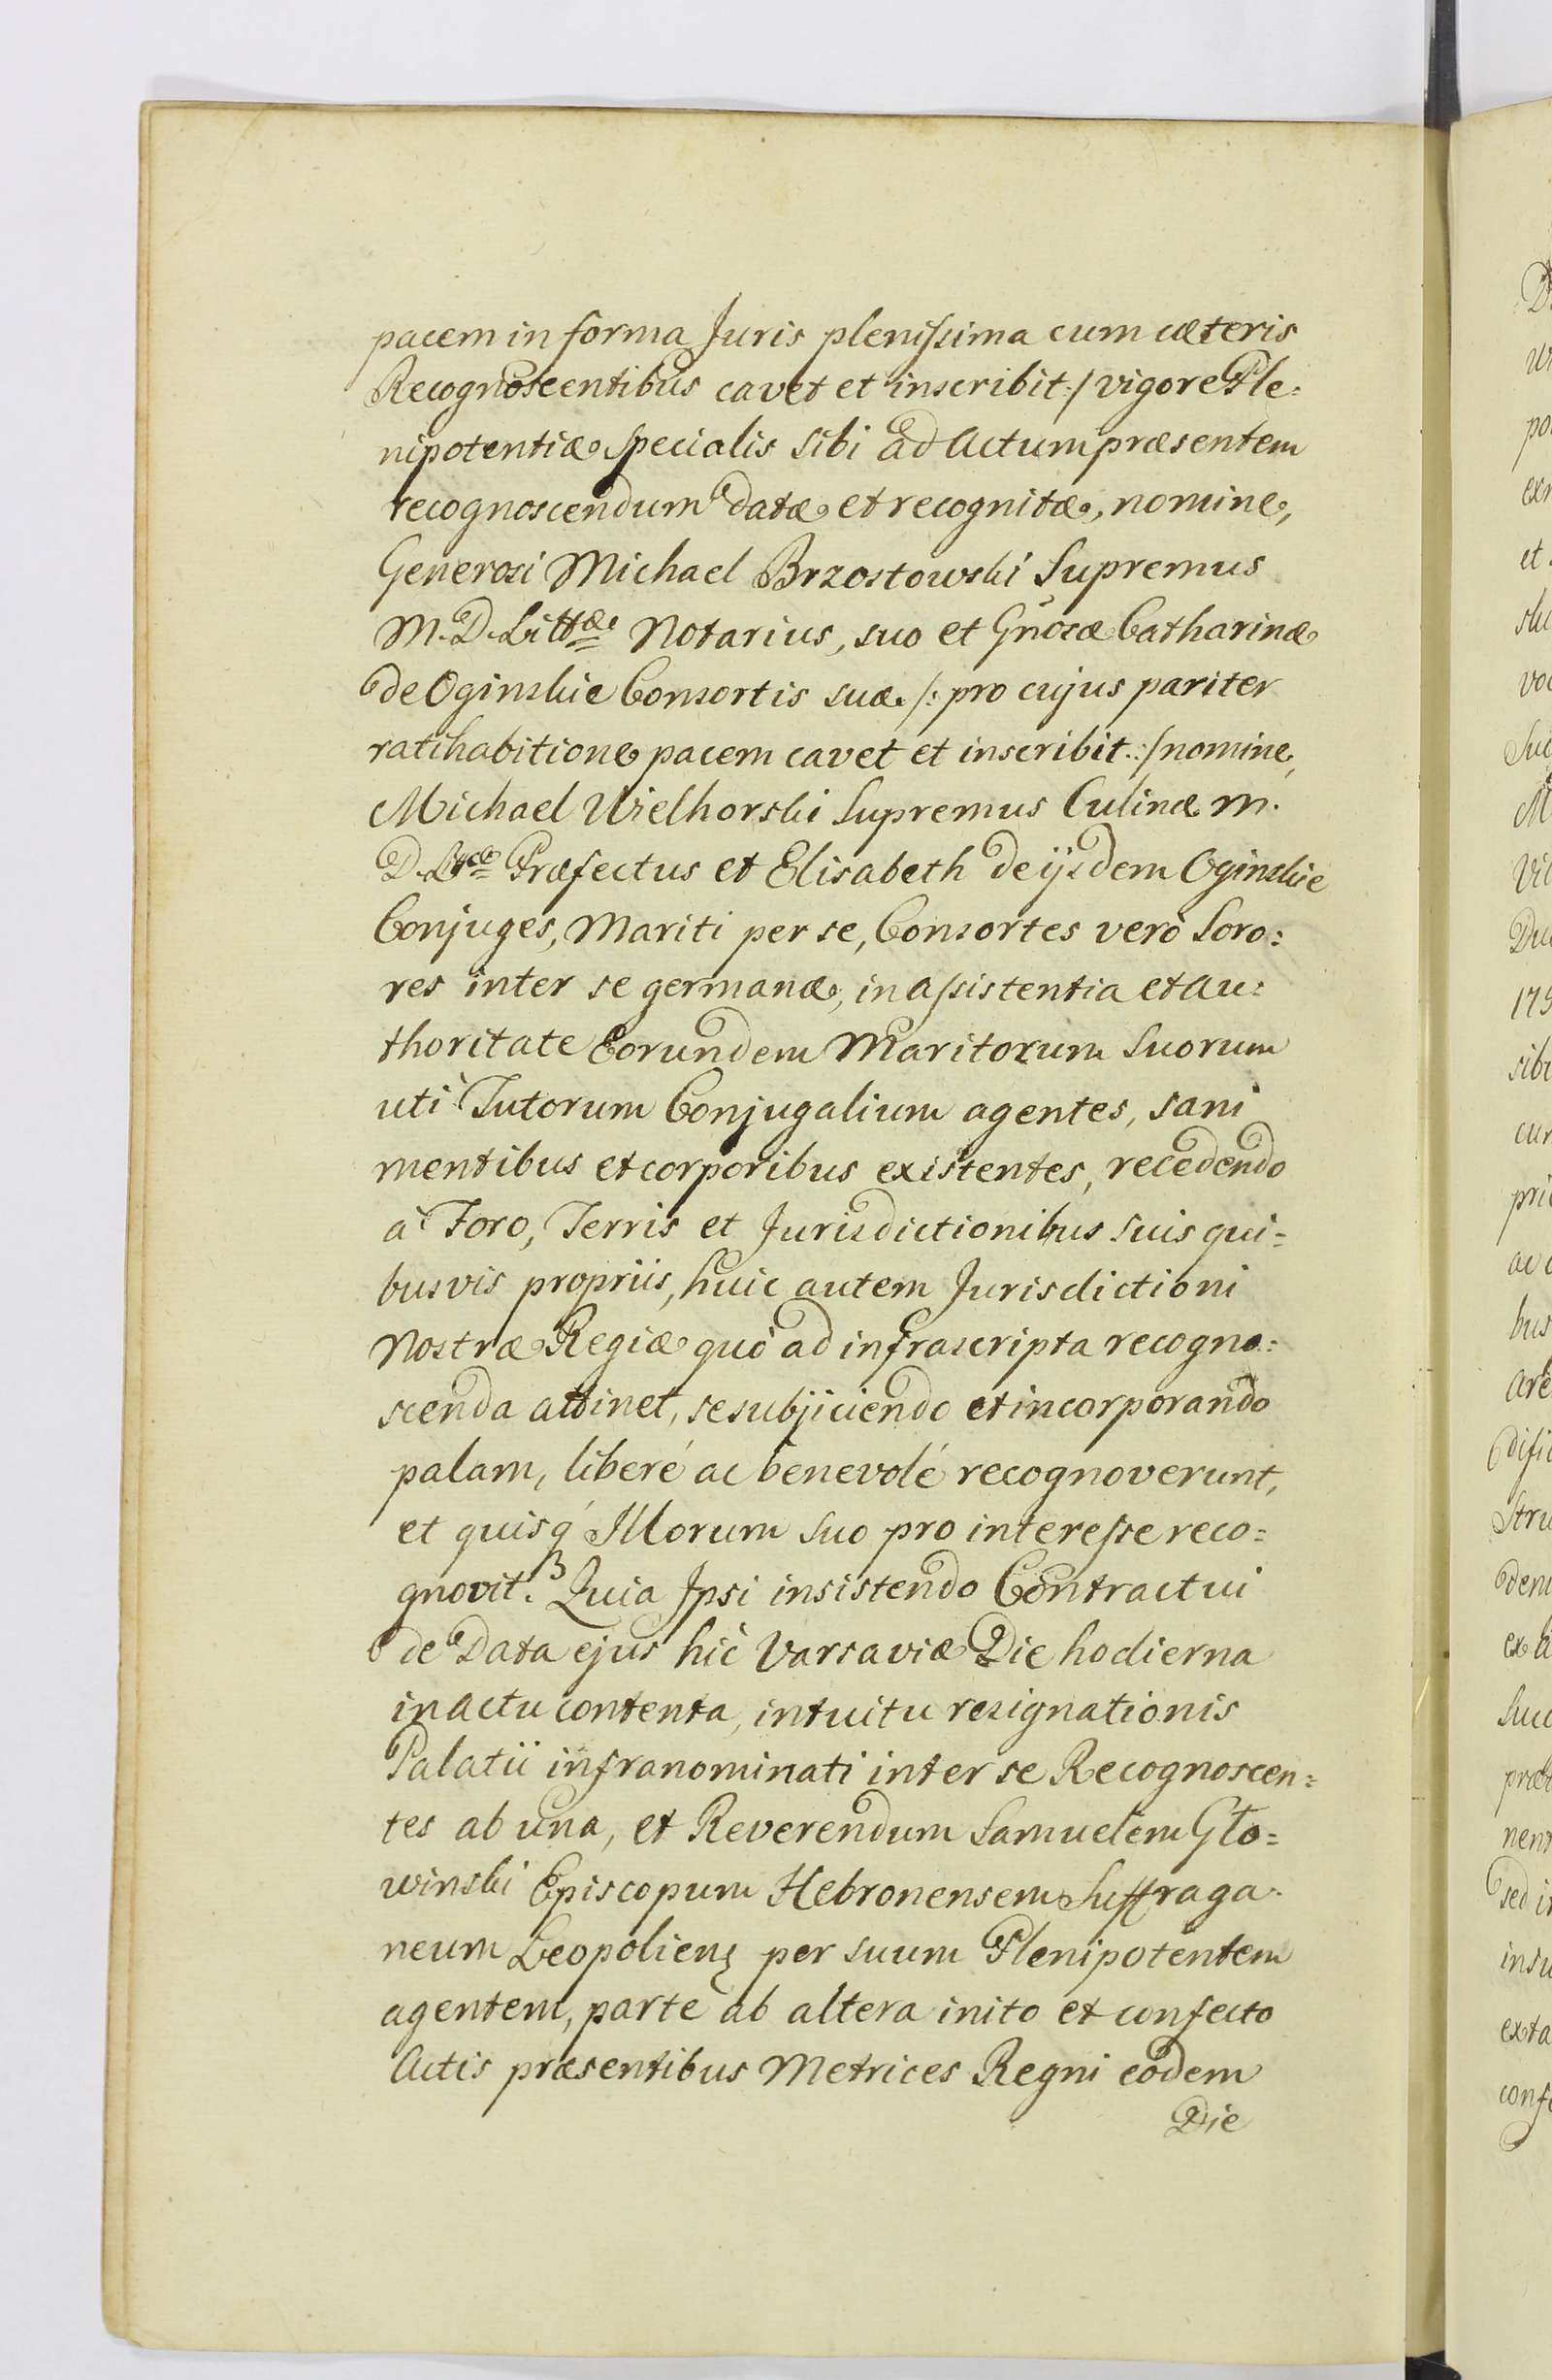 pacem in forma Juris plenissima cum cæteris
Recognoscentibus cavet et inscribit :/ vigore Ple=
nipotentiæ specialis sibi ad Actum præsentem
recognoscendum datæ et recognitæ, nomine,
Generosi Michael Brzostowski Supremus
M. D. Littæ Notarius, suo et Gnosæ Catharinæ
de Oginskie Consortis suæ /: pro cujus pariter
ratihabitione pacem cavet et inscribit :/ nomine,
Michael Wielhorski Supremus Culinæ M.
D. Præfectus et Elisabeth de ijsdem Oginskie
Conjuges, Mariti per se, Consortes verò Soro=
res inter se germanæ, in assistentia et au=
thoritate Eorundem Maritorum Suorum
utì Tutorum Conjugalium agentes, sani
mentibus et corporibus existentes, recedendo
à Foro, Terris et Jurisdictionibus suis qui=
busvis propriis, huic autem Jurisdictioni
Nostræ Regiæ quò ad infrascripta recogno=
scenda attinet, se subjiciendo et incorporando
palam, liberé ac benevolé recognoverunt,
et quisq́ Illorum suo pro interesse reco=
gnovit. Quia Ipsi insistendo Contractui
de Data ejus hìc Varsaviæ Die hodierna
in actu contenta, intuitu resignationis
Palatii infranominati inter se Recognoscen=
tes ab una, et Reverendum Samuelem Gło=
winski Episcopum Hebronensem Suffraga=
neum Leopolien̨ per suum Plenipotentem
agentem, parte ab altera inito et confecto
Actis præsentibus Metrices Regni eodem
Die
D
po
et
voc
M
Vic
175
sibi
cur
pri
bus
are
Stru
dem
ex
præ
nen
sed
exta